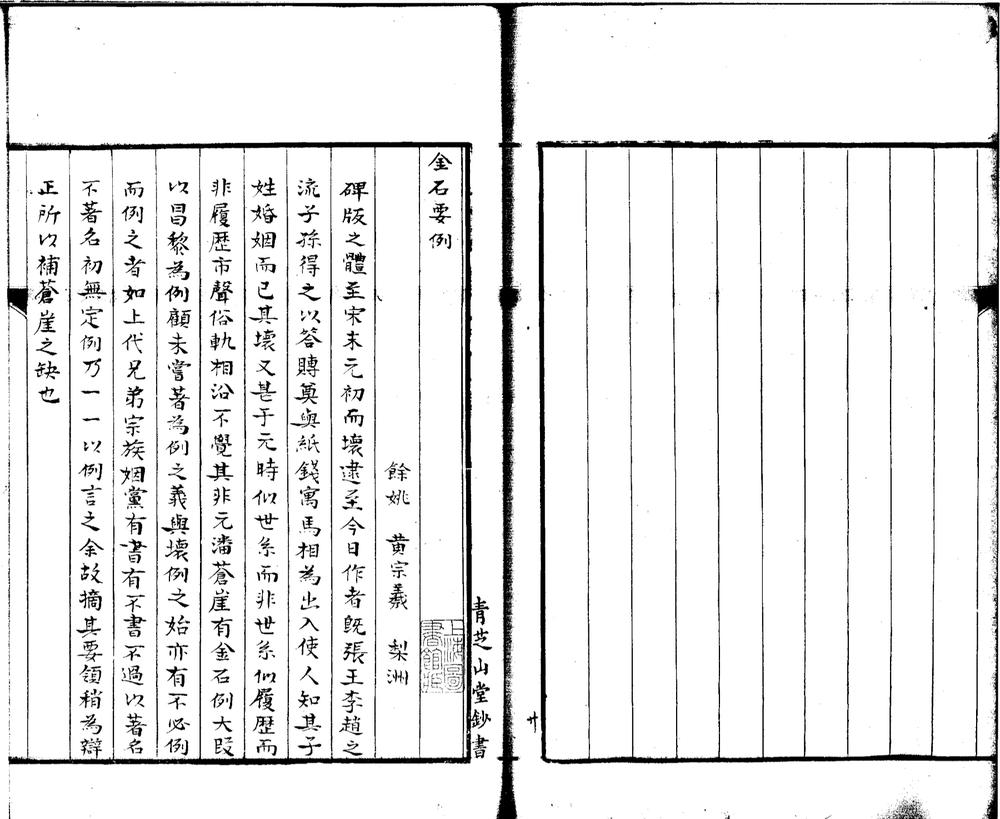 金石要例
餘姚　黄宗羲　梨洲
碑版之體至宋末元初而壞逮至今日作者既張王李趙之
流子孫得之以答賻奠與紙錢寓馬相為出入使人知其子
姓婚姻而已其壞又甚于元時似世系而非世系似履歷而
非履歷市聲俗軌相沿不覺其非元潘蒼崖有金石例大段
以昌黎為例顧未嘗著為例之義與壞例之始亦有不必例
而例之者如上代兄弟宗族姻黨有書有不書不過以著名
不著名初無定例乃一一以例言之余故摘其要領稍為辯
正所以補蒼崖之缺也
青芝山堂鈔書
上海圖書館藏